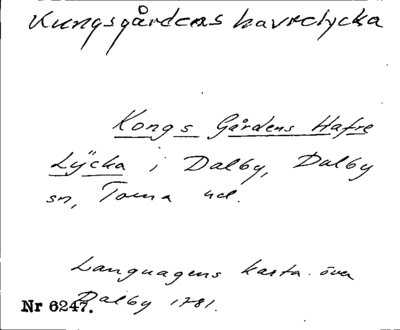 Kungsgårdens havrelycka
Kongs Gårdens Hafre
Lÿcka i Dalby, Dalby
sn, Torna hd.
Languagens karta över
Dalby 1781.
Nr 6247.